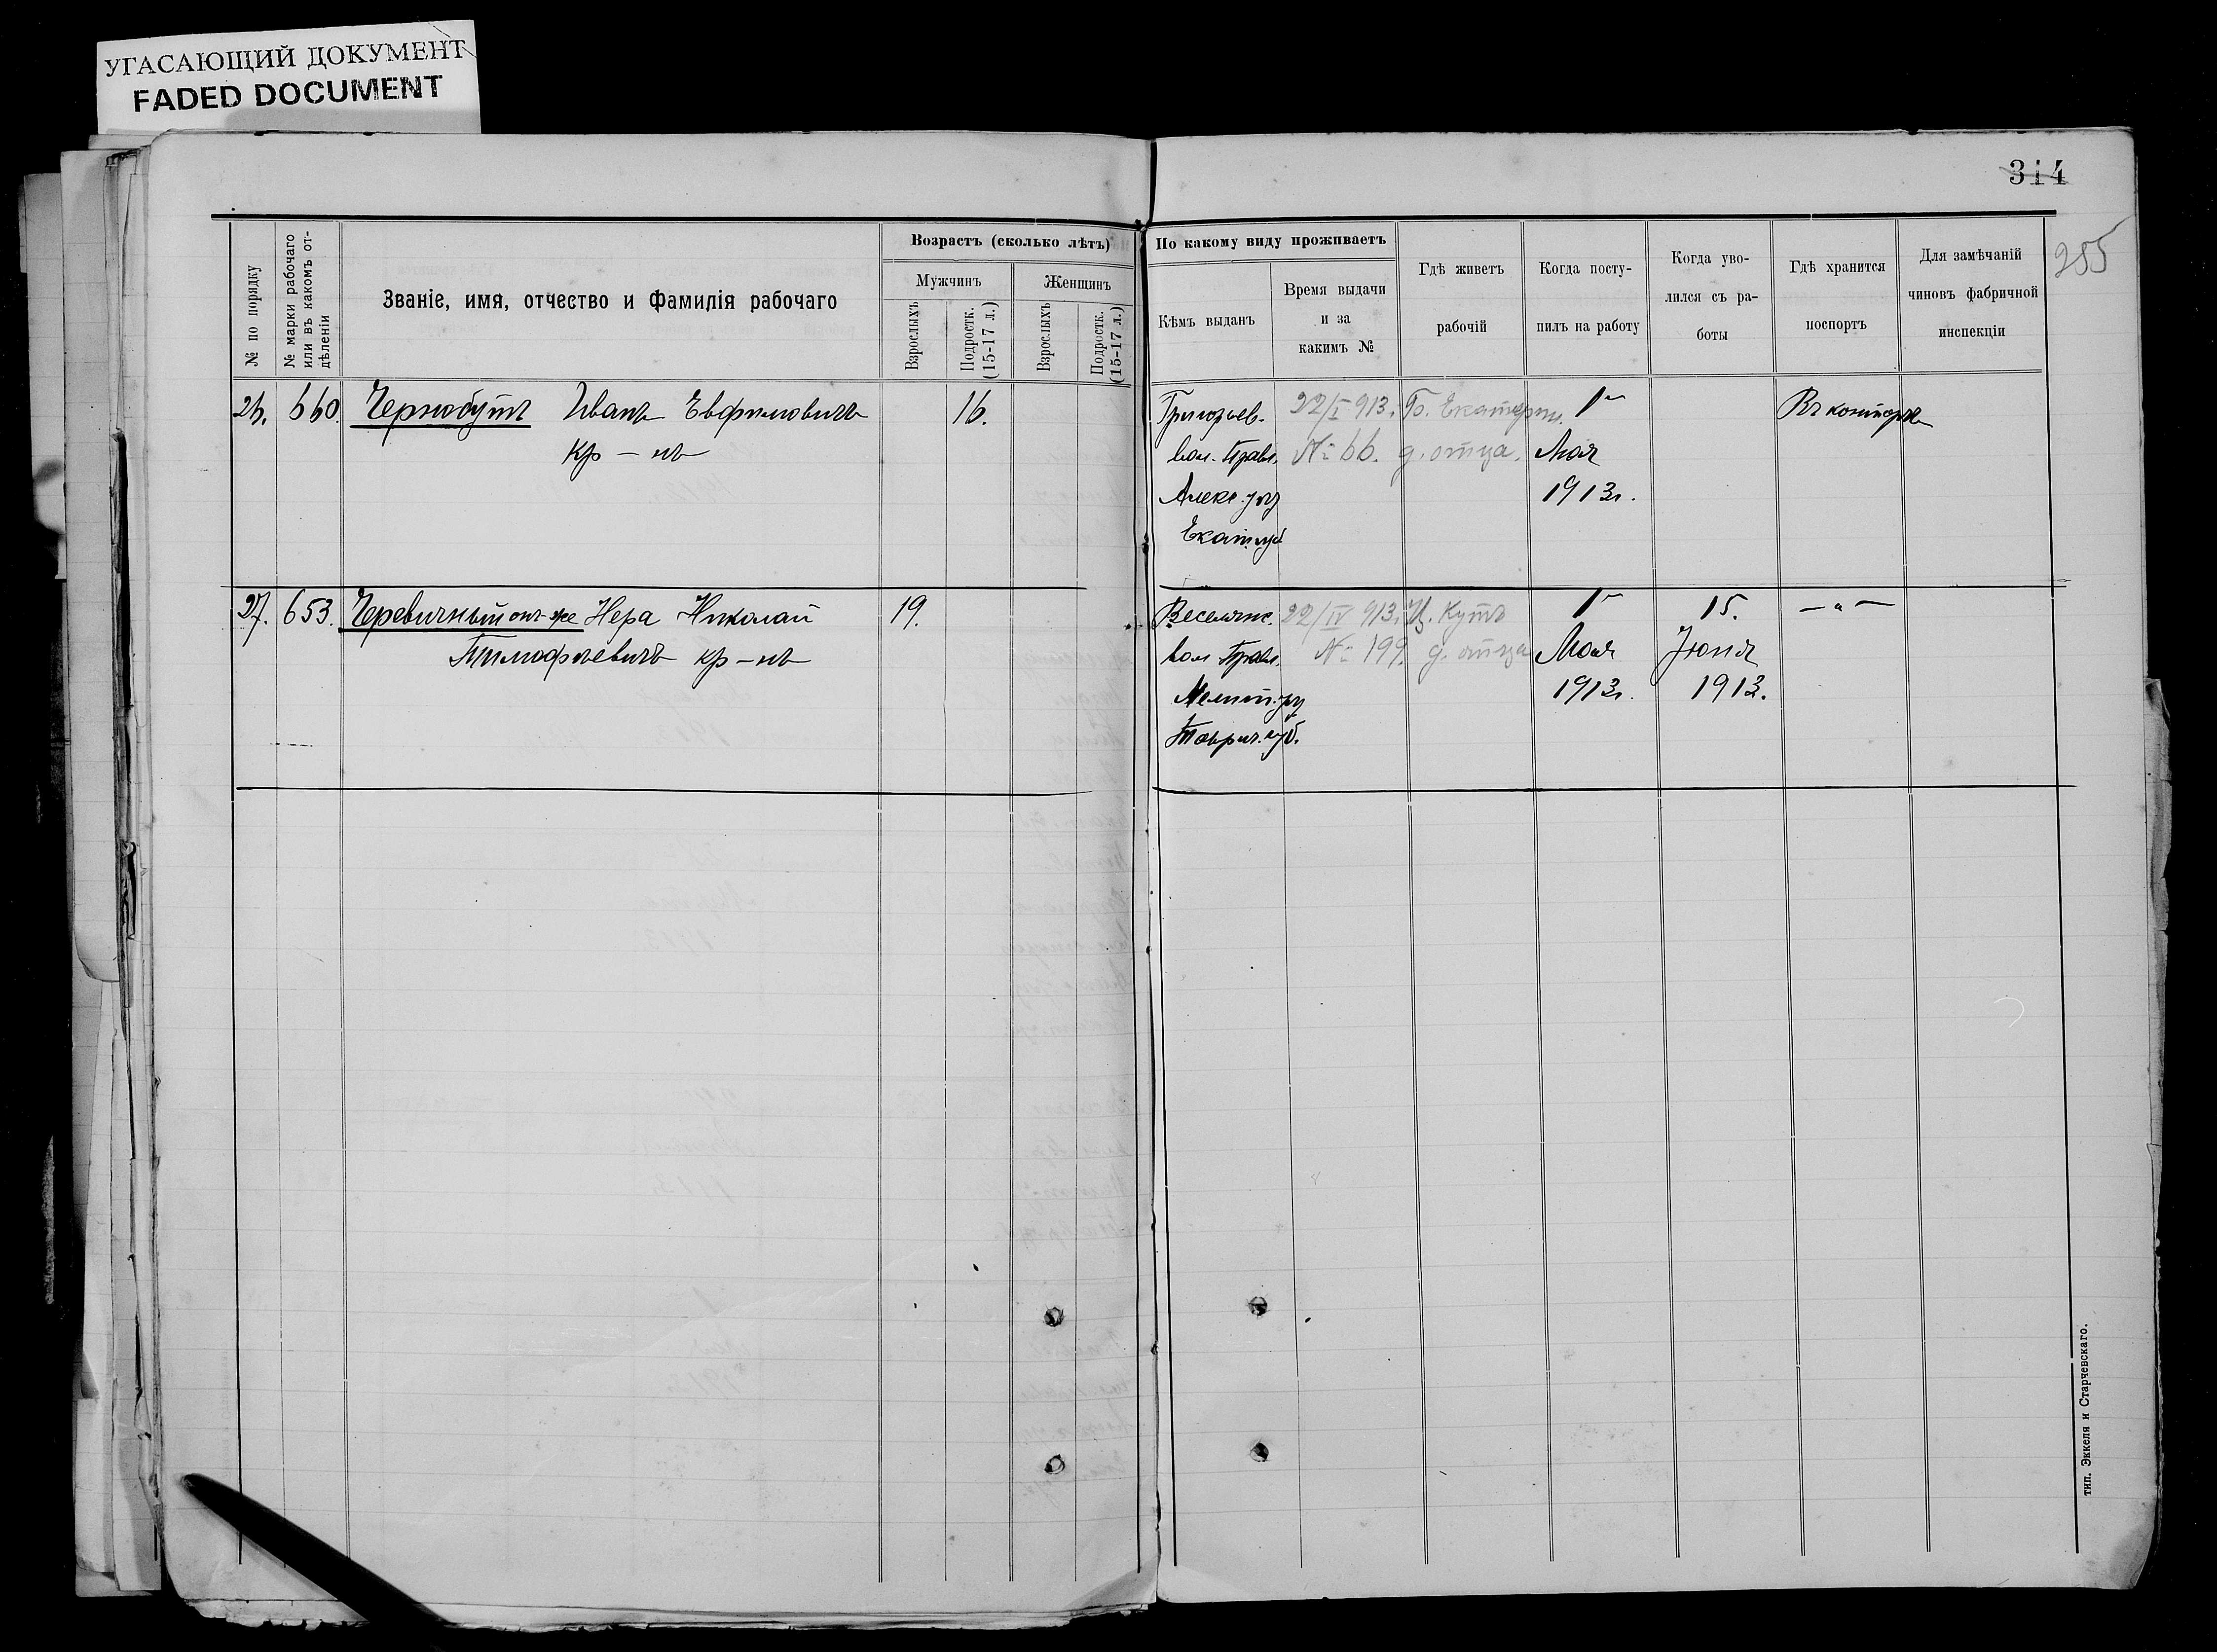 УГАСАЮЩИЙ ДОКУМЕНТ
FADED DOCUMENT
314
285
№ по порядку
№ марки рабочаго
или въ какомъ от-
дѣленіи
Званіе, имя, отчество и фамилія рабочаго
Возрастъ (сколько лѣтъ)
Мужчинъ
Женщинъ
Взрослыхъ
Подростк.
(15-17 л.)
Взрослыхъ
Подростк.
(15-17 л.)
По какому виду проживаетъ
Кѣмъ выданъ
Время выдачи
и за
какимъ №
Гдѣ живетъ
рабочій
Когда посту-
пилъ на работу
Когда уво-
лился съ ра-
боты
Гдѣ хранится
поспортъ
Для замѣчаній
чиновъ фабричной
инспекціи
26. 660. Чернобутъ Иванъ Евфимовичъ
кр-нъ
16.
Григорьев.
вол. Правл.
Алекс. у.
22/I 913.
№ 66.
д. отца.
1
Мая
1913г.
Въ конторѣ
27. 653. Черевичный онъ-же Нера Николай
Тимофѣевичъ кр-нъ
19.
Веселянс.
вол. Правл.
Мелит. у
Таврич. губ.
22/IV 913.
№ 199.
Кутъ
д. отца
1
Мая
1913г.
15.
Іюня
1913.
— „ —
тип. Эккеля и Старчевскаго.